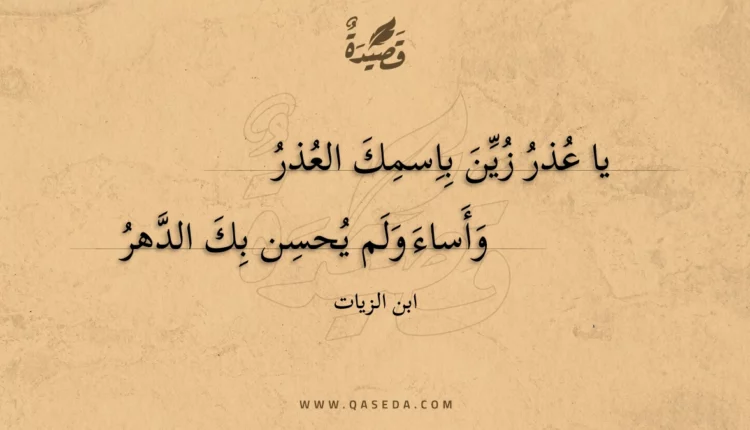 قَصِيْدَةٌ
يا عُذرُ زُيِّنَ بِاِسمِكَ العُذرُ
وَأَساءَ وَلَم يُحسِن بِكَ الدَّهرُ
ابن الزيات
WWW.QASEDA.COM